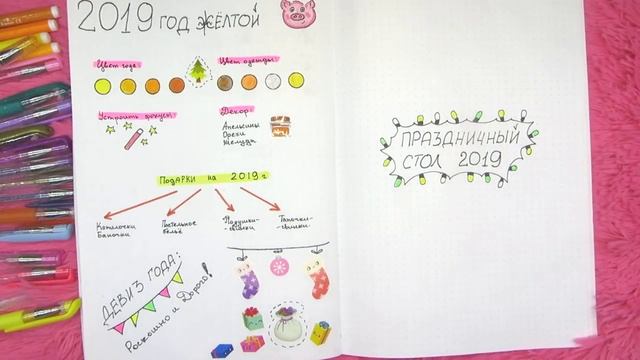 2019 год жёлтой
Цвет года:
Цвет одежды:
Устроить фокусы:
Декор:
Апельсины
Орехи
Жёлуди
Подарки на 2019 г
Копилочки
Баночки
Постельное
бельё
Подушки-
Тапочки-
ДЕВИЗ ГОДА:
Роскошно и Дорого!
ПРАЗДНИЧНЫЙ
СТОЛ 2019